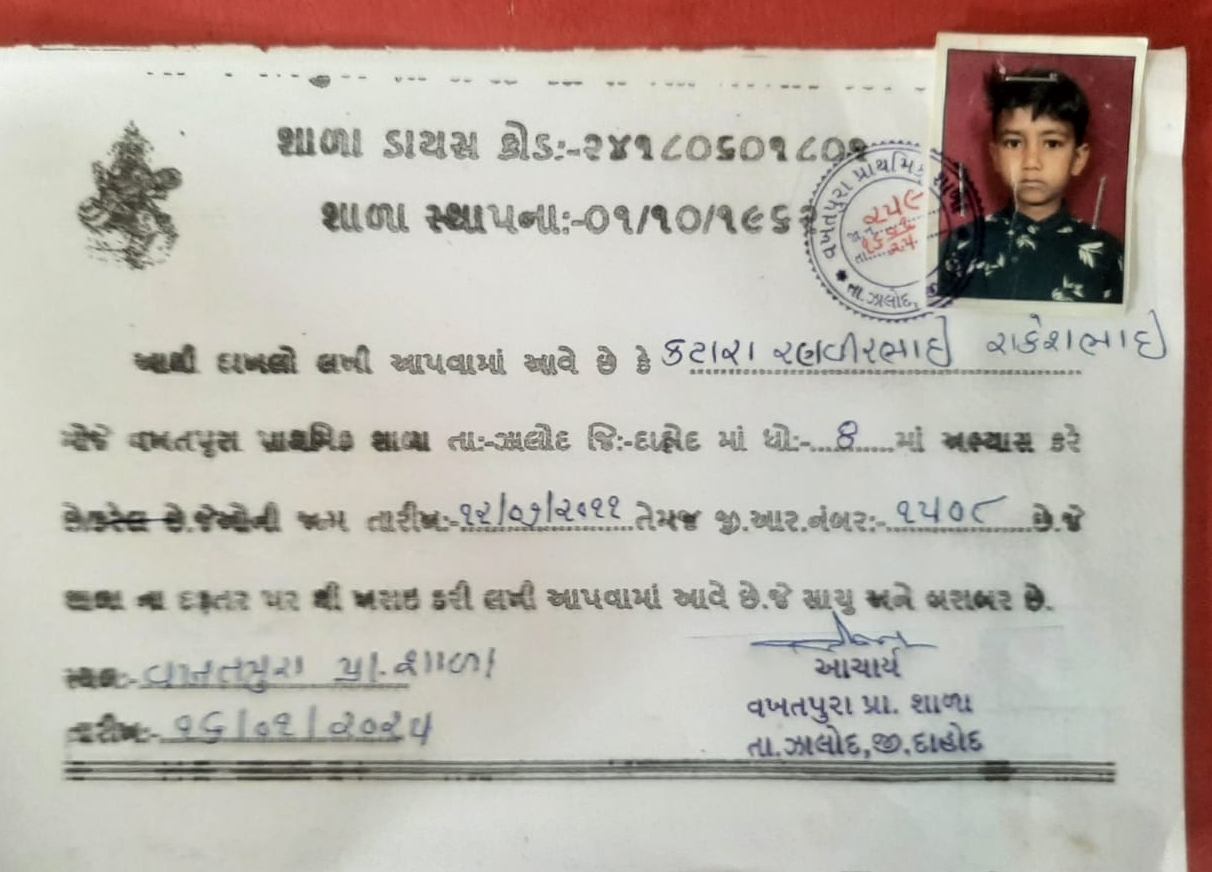 શાળા ડાયસ કોડ:-૨૪૧૮૦૬૦૧૮૦૧
શાળા સ્થાપના:-૦૧/૧૦/૧૯૬
વખતપુરા પ્રાથમિક શાળા
૨૫૯
જા.નં.
તા. ૧૬/૦૧ ૨.૫.
તા.ઝાલોદ,
આથી દાખલો લખી આપવામાં આવે છે કે કટારા રણવીરભાઇ રાકેશભાઇ
મોજે વખતપુરા પ્રાથમિક શાળા તા:-ઝાલોદ જિ:-દાહોદ માં ધો:-...8.....માં અભ્યાસ કરે
છે/કરેલ છે.જેઓની જન્મ તારીખ:-૧૨/૦૭/૨૦૧૧ તેમજ જી.આર.નંબર:-૧૫૦૮ છે.જે
શાળા ના દફતર પર થી ખરાઇ કરી લખી આપવામાં આવે છે.જે સાચુ અને બરાબર છે.
સ્થળ:-વખતપુરા પ્રા.શાળા
તારીખ:-૧૬/૦૧/૨૦૨૫
આચાર્ય
વખતપુરા પ્રા. શાળા
તા.ઝાલોદ,જી.દાહોદ